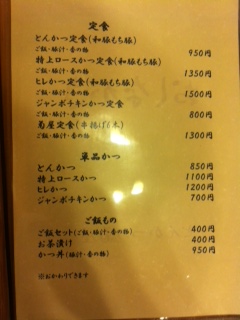 定食
とんかつ定食(和豚もち豚)
ご飯・豚汁・香の物 950円
特上ロースかつ定食(和豚もち豚)
ご飯・豚汁・香の物 1350円
ヒレかつ定食(和豚もち豚)
ご飯・豚汁・香の物 1500円
ジャンボチキンかつ定食
ご飯・豚汁・香の物 800円
屋定食(串揚げ6本)
ご飯・豚汁・香の物 1300円
単品かつ
とんかつ 850円
特上ロースかつ 1100円
ヒレかつ 1200円
ジャンボチキンかつ 700円
ご飯もの
ご飯セット(ご飯・豚汁・香の物) 400円
お茶漬け 400円
かつ丼(ご飯・豚汁・香の物) 950円
※おかわりできます